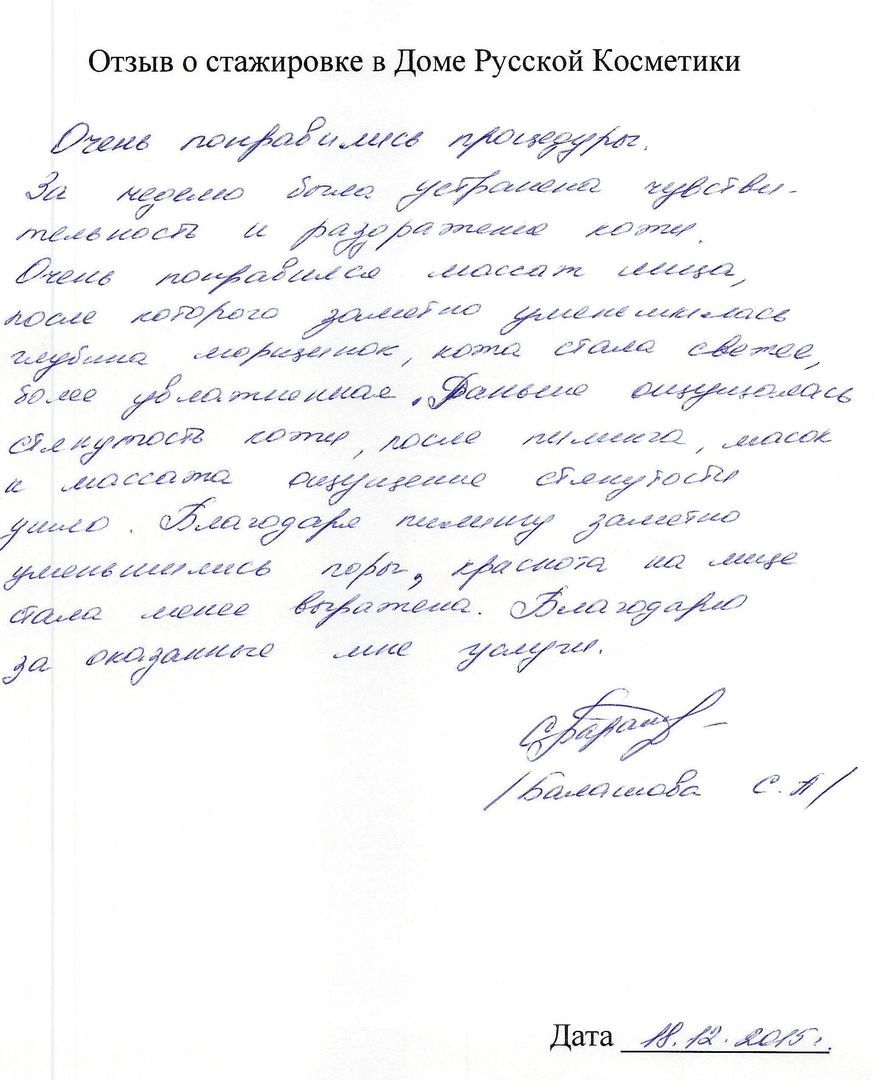 Отзыв о стажировке в Доме Русской Косметики
Очень понравились процедуры.
За неделю была устранена чувстви-
тельность и раздражение кожи.
Очень понравился массаж лица,
после которого заметно уменьшилась
глубина морщинок, кожа стала свежее,
более увлажненная. Раньше ощущалась
стянутость кожи, после пилинга, масок
и массажа ощущение стянутости
ушло. Благодаря пилингу заметно
уменьшились поры, краснота на лице
стала менее выражена. Благодарю
за оказанные мне услуги.
/Балашова С.А/
Дата 18.12.2015г.